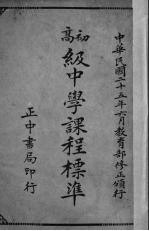 中華民國二十五年六月教育部修正頒行
初高級中學課程標準
正中書局印行